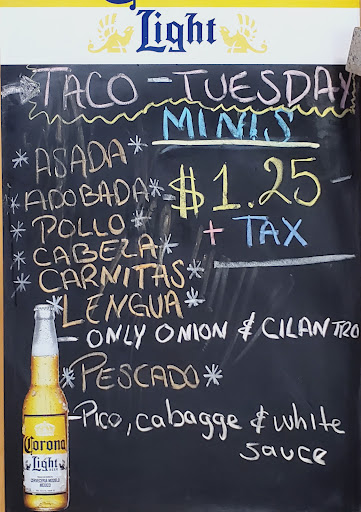 Light
TACO-TUESDAY
MINIS
*ASADA*
*ADOBADA*
$1.25
*POLLO*
+ TAX
*CABEZA*
*CARNITAS*
*LENGUA*
-ONLY ONION & CILANTRO
*PESCADO*
-Pico, cabagge & white
sauce
Corona
Light